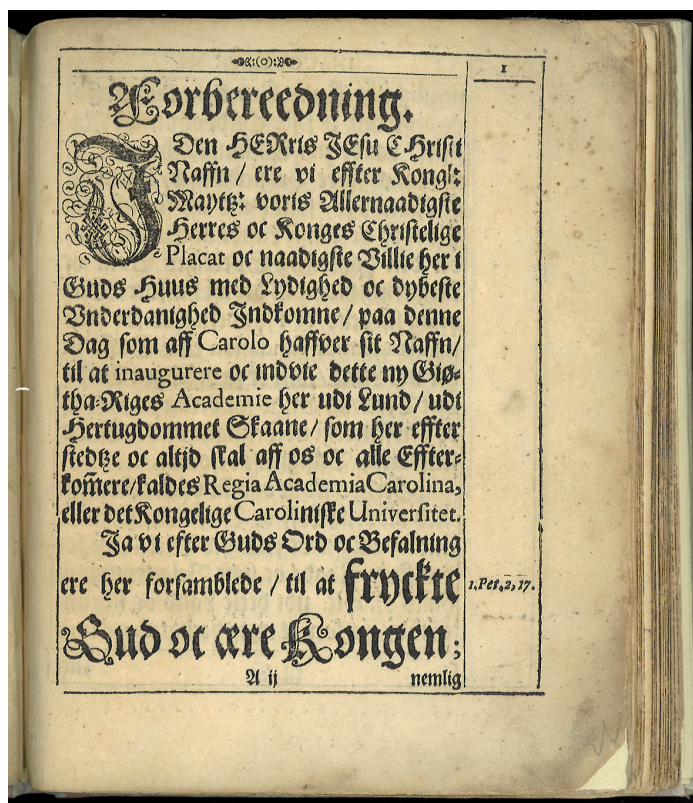 :(o):
1
Forbereedning.
JDen HERris JEsu CHristi
Naffn / ere vi effter Kongl:
Maytz: voris Allernaadigste
Herres oc Konges Christelige
Placat oc naadigste Villie her i
Guds Huus med Lydighed oc dybeste
Vnderdanighed Indkomne / paa denne
Dag som aff Carolo haffver sit Naffn /
til at inaugurere oc indvie dette ny Giø-
tha-Riges Academie her udi Lund / udi
Hertugdommet Skaane / som her effter
stedtze oc altjd skal aff os oc alle Effter-
kom̃ere / kaldes Regia Academia Carolina,
eller det Kongelige Caroliniske Universitet.
Ja vi efter Guds Ord oc Befalning
ere her forsamblede / til at fryckte
1. Pet. 2, 17.
Gud oc ære Kongen;
A ij nemlig